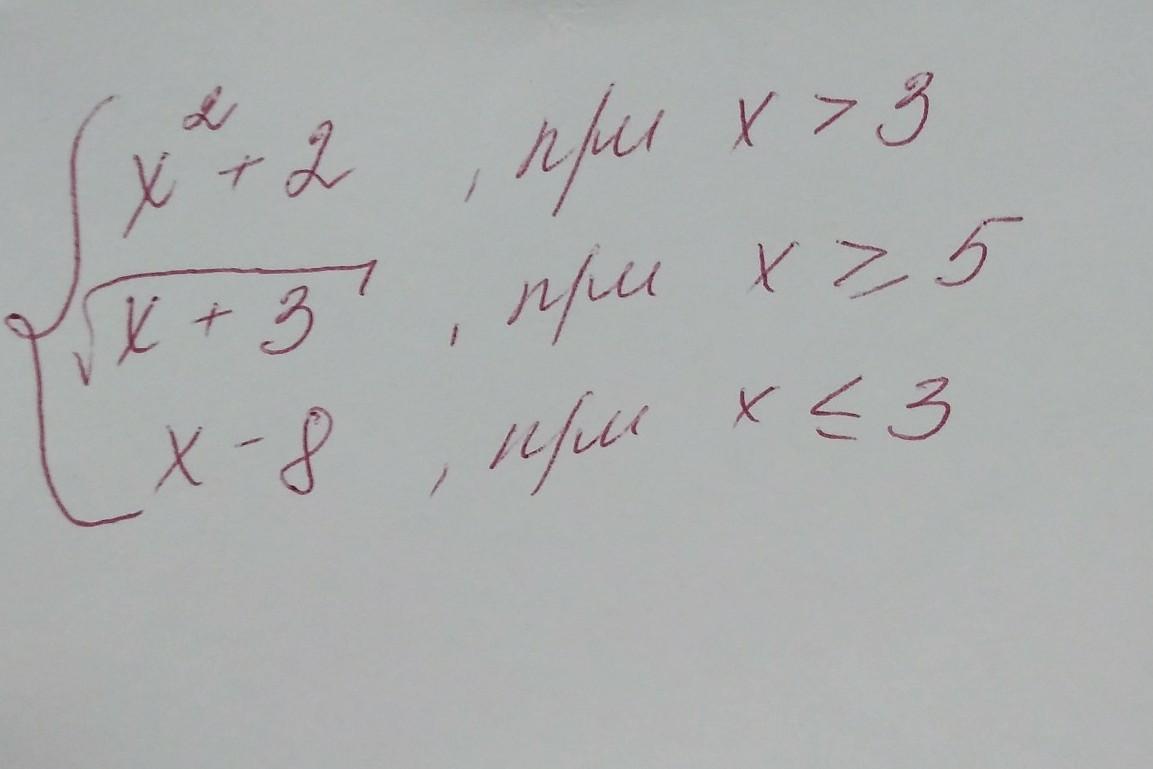 x² + 2 , при x > 3
√(x + 3) , при x ≥ 5
x - 8 , при x ≤ 3